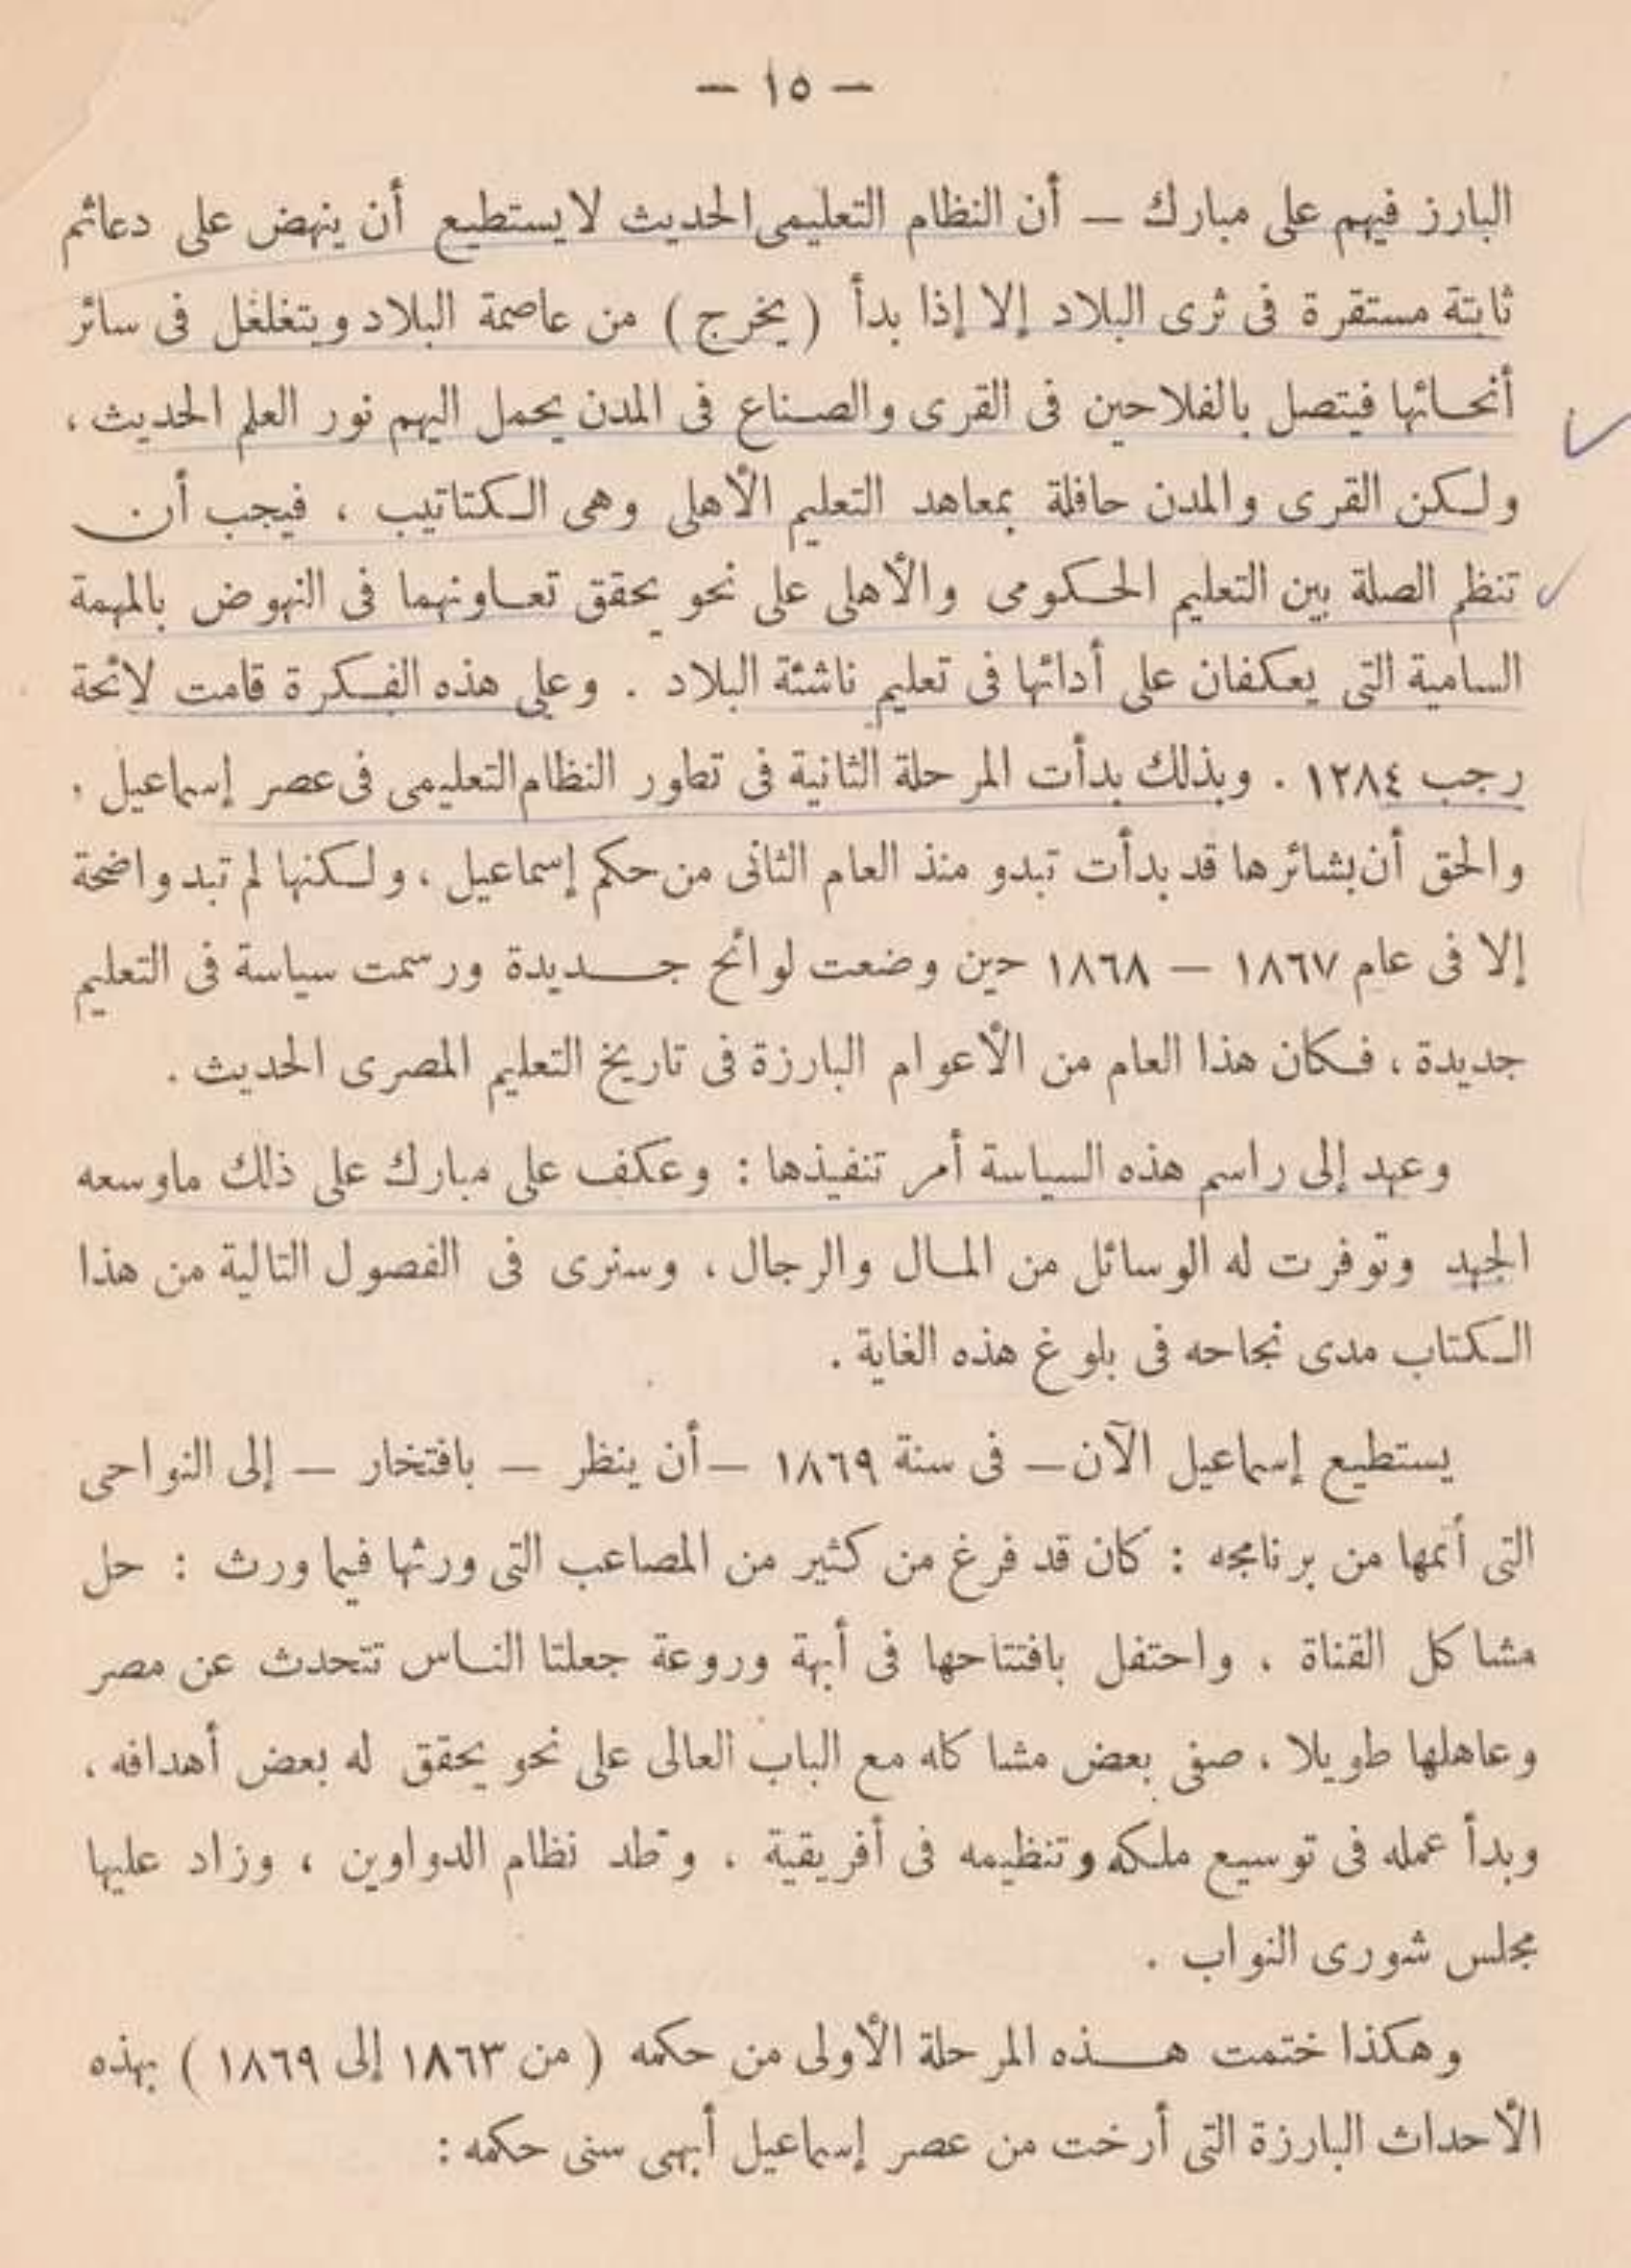 — ١٥ —
البارز فيهم على مبارك — أن النظام التعليمى الحديث لا يستطيع أن ينهض على دعائم
ثابتة مستقرة فى ثرى البلاد إلا إذا بدأ ( يخرج ) من عاصمة البلاد ويتغلغل فى سائر
أنحائها فيتصل بالفلاحين فى القرى والصناع فى المدن يحمل اليهم نور العلم الحديث ،
ولكن القرى والمدن حافلة بمعاهد التعليم الأهلى وهى الكتاتيب ، فيجب أن
تنظم الصلة بين التعليم الحكومى والأهلى على نحو يحقق تعاونهما فى النهوض بالمهمة
السامية التى يعكفان على أدائها فى تعليم ناشئة البلاد . وعلى هذه الفكرة قامت لائحة
رجب ١٢٨٤ . وبذلك بدأت المرحلة الثانية فى تطور النظام التعليمى فى عصر إسماعيل .
والحق أن بشائرها قد بدأت تبدو منذ العام الثانى من حكم إسماعيل ، ولكنها لم تبد واضحة
إلا فى عام ١٨٦٧ — ١٨٦٨ حين وضعت لوائح جديدة ورسمت سياسة فى التعليم
جديدة ، فكان هذا العام من الأعوام البارزة فى تاريخ التعليم المصرى الحديث .
وعهد إلى راسم هذه السياسة أمر تنفيذها : وعكف على مبارك على ذلك ماوسعه
الجهد وتوفرت له الوسائل من المال والرجال ، وسنرى فى الفصول التالية من هذا
الكتاب مدى نجاحه فى بلوغ هذه الغاية .
يستطيع إسماعيل الآن — فى سنة ١٨٦٩ — أن ينظر — بافتخار — إلى النواحى
التى أتمها من برنامجه : كان قد فرغ من كثير من المصاعب التى ورثها فيما ورث : حل
مشاكل القناة ، واحتفل بافتتاحها فى أبهة وروعة جعلتا الناس تتحدث عن مصر
وعاهلها طويلا ، صفى بعض مشاكله مع الباب العالى على نحو يحقق له بعض أهدافه ،
وبدأ عمله فى توسيع ملكه وتنظيمه فى أفريقية ، وطد نظام الدواوين ، وزاد عليها
مجلس شورى النواب .
وهكذا ختمت هذه المرحلة الأولى من حكمه ( من ١٨٦٣ إلى ١٨٦٩ ) بهذه
الأحداث البارزة التى أرخت من عصر إسماعيل أبهى سنى حكمه :